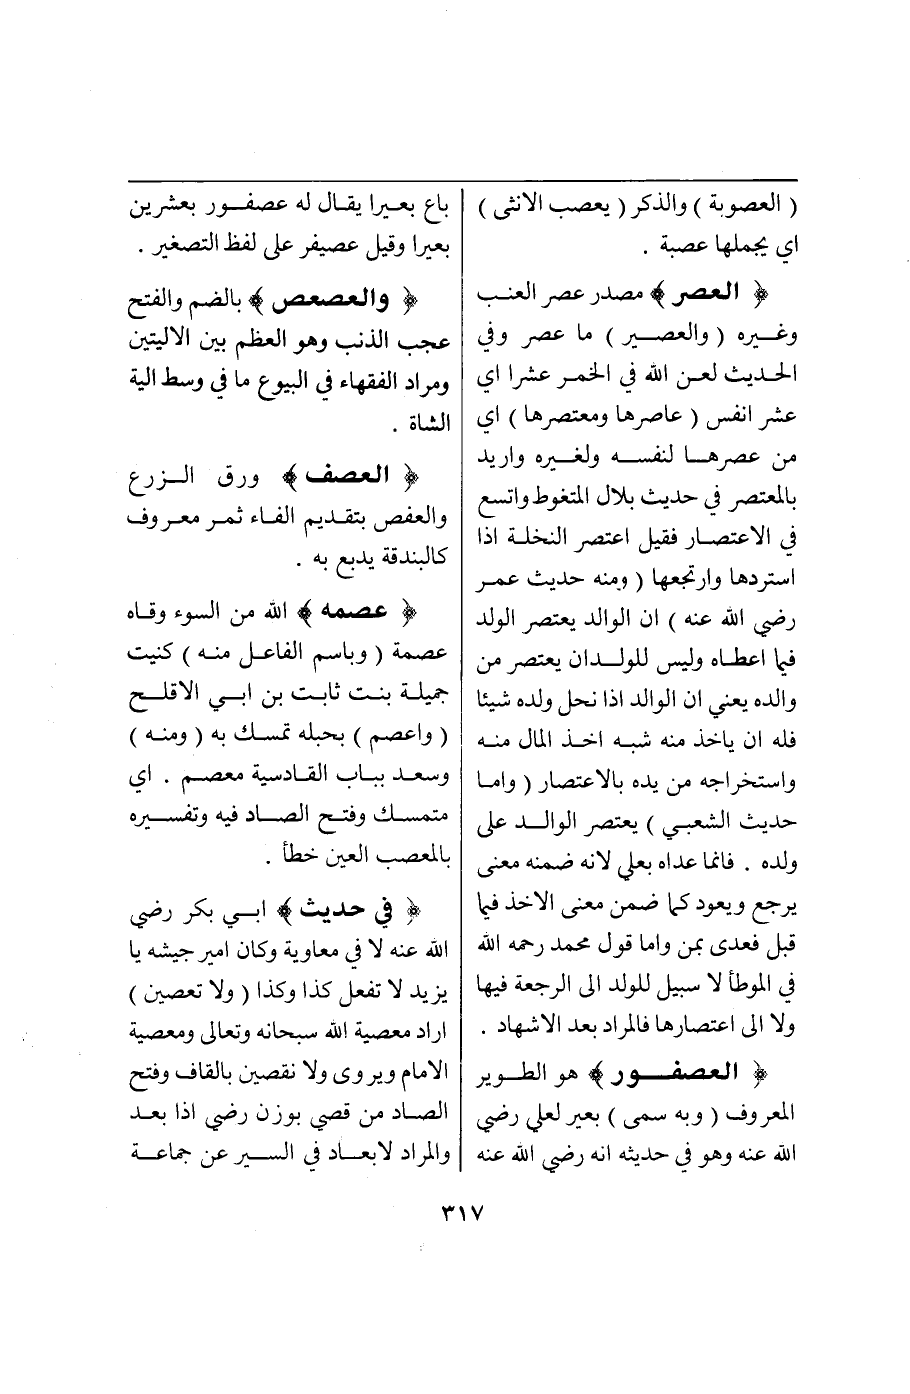 ( العصوبة ) والذكر ( يعصب الانثى )
اي يجملها عصبة .
﴿ العصر ﴾ مصدر عصر العنب
وغيره ( والعصير ) ما عصر وفي
الحديث لعن الله في الخمر عشرا اي
عشر انفس ( عاصرها ومعتصرها ) اي
من عصرها لنفسه ولغيره واريد
بالمعتصر في حديث بلال المتغوط واتسع
في الاعتصار فقيل اعتصر النخلة اذا
استردها وارتجعها ( ومنه حديث عمر
رضي الله عنه ) ان الوالد يعتصر الولد
فيما اعطاه وليس للولدان يعتصر من
والده يعني ان الوالد اذا نحل ولده شيئا
فله ان ياخذ منه شبه اخذ المال منه
واستخراجه من يده بالاعتصار ( واما
حديث الشعبي ) يعتصر الوالد على
ولده . فانما عداه بعلى لانه ضمنه معنى
يرجع ويعود كما ضمن معنى الاخذ فيما
قبل فعدى بمن واما قول محمد رحمه الله
في الموطأ لا سبيل للولد الى الرجعة فيها
ولا الى اعتصارها فالمراد بعد الاشهاد .
﴿ العصفور ﴾ هو الطوير
المعروف ( وبه سمى ) بعير لعلي رضي
الله عنه وهو في حديثه انه رضي الله عنه
باع بعيرا يقال له عصفور بعشرين
بعيرا وقيل عصيفر على لفظ التصغير .
﴿ والعصعص ﴾ بالضم والفتح
عجب الذنب وهو العظم بين الاليتين
ومراد الفقهاء في البيوع ما في وسط الية
الشاة .
﴿ العصف ﴾ ورق الزرع
والعفص بتقديم الفاء ثمر معروف
كالبندقة يدبع به .
﴿ عصمه ﴾ الله من السوء وقاه
عصمة ( وباسم الفاعل منه ) كنيت
جميلة بنت ثابت بن ابي الاقلح
( واعصم ) بحبله تمسك به ( ومنه )
وسعد بباب القادسية معصم . اي
متمسك وفتح الصاد فيه وتفسيره
بالمعصب العين خطأ .
﴿ في حديث ﴾ ابي بكر رضي
الله عنه لا في معاوية وكان امير جيشه يا
يزيد لا تفعل كذا وكذا ( ولا تعصين )
اراد معصية الله سبحانه وتعالى ومعصية
الامام ويروى ولا نقصين بالقاف وفتح
الصاد من قصي بوزن رضي اذا بعد
والمراد لابعاد في السير عن جماعة
٣١٧